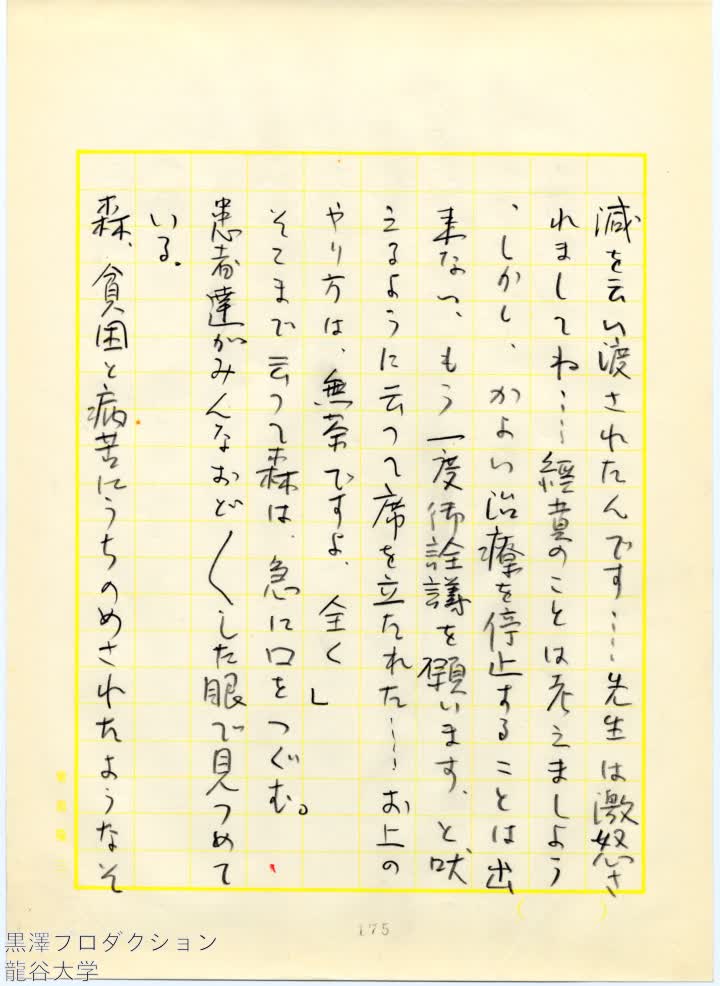 減を云い渡されたんです……先生は激怒さ
れましてね……経費のことは考えましよう
、しかし、かよい治療を停止することは出
来ない、もう一度御詮議を願います、と吠
えるように云つて席を立たれた……お上の
やり方は、無茶ですよ、全く」
そこまで云つて森は、急に口をつぐむ。
患者達がみんなおど〳〵した眼で見つめて
いる。
森、貧困と病苦にうちのめされたようなそ
175
黒澤プロダクション
龍谷大学